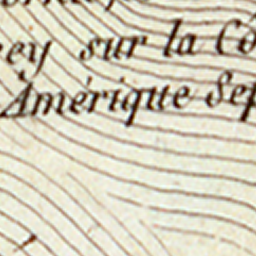 ey sur la Cô
Amérique Sep